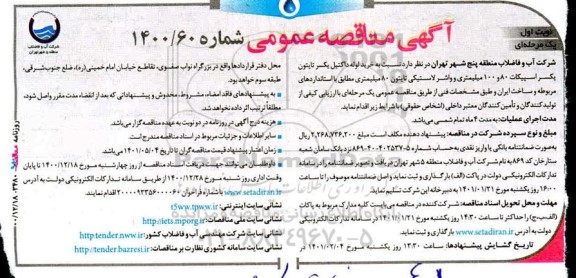 نوبت اول
یک مرحله‌ای
آگهی مناقصه عمومی شماره ۱۴۰۰/۶۰
شرکت آب و فاضلاب
منطقه پنج شهر تهران
شرکت آب و فاضلاب منطقه پنج شهر تهران در نظر دارد نسبت به خرید لوله داکتیل یکسر تایتون
یکسر اسپیگات ۸۰ و ۱۰۰ میلیمتری و واشر لاستیکی تایتون ۸۰ میلیمتری مطابق با استانداردهای
مربوطه و ساخت ایران و طبق مشخصات فنی از طریق مناقصه عمومی یک مرحله‌ای با ارزیابی کیفی از
تولیدکنندگان و تأمین‌کنندگان معتبر داخلی (اشخاص حقوقی) با شرایط زیر اقدام نماید.
مدت اجرای عملیات: به مدت ۴ ماه تمام شمسی می‌باشد.
مبلغ و نوع سپرده شرکت در مناقصه: پیشنهاد دهنده مکلف است مبلغ ۲,۲۶۸,۷۳۶,۲۰۰ ریال
به صورت ضمانتنامه بانکی یا واریز نقدی به حساب شماره
نزد بانک سامان شعبه
ستارخان کد ۸۶۹ به نام شرکت آب و فاضلاب منطقه پنج شهر تهران
تدارکات الکترونیکی دولت در پاکت (الف) بارگذاری و ثبت نماید و اصل ضمانتنامه موصوف را تا ساعت
۱۶:۰۰ روز یکشنبه مورخ ۱۴۰۱/۰۱/۲۱ به دبیرخانه این شرکت تسلیم نماید.
مهلت و محل تحویل اسناد: شرکت‌کننده در مناقصه می‌بایست کلیه مدارک مربوط به پاکات
(الف، ب، ج) را حداکثر تا ساعت ۱۴:۳۰ روز یکشنبه مورخ ۱۴۰۱/۰۱/۲۱ در سامانه تدارکات الکترونیکی
دولت به آدرس www.setadiran.ir بارگذاری و ثبت نماید.
تاریخ گشایش پیشنهادها: ساعت ۱۳:۳۰ روز یکشنبه مورخ ۱۴۰۱/۰۲/۰۴ در
محل دفتر قراردادها واقع در بزرگراه نواب صفوی، تقاطع خیابان امام خمینی (ره)، ضلع جنوب‌شرقی،
طبقه سوم خواهد بود.
به پیشنهادهای فاقد امضاء، مشروط، مخدوش و پیشنهاداتی که بعد از انقضاء مدت مقرر واصل شود،
مطلقاً ترتیب اثر داده نخواهد شد.
هزینه درج آگهی در روزنامه در دو نوبت به عهده مناقصه گزار می‌باشد.
سایر اطلاعات و جزئیات مربوط در اسناد مناقصه مندرج است.
زمان اعتبار پیشنهاد قیمت مناقصه گران تا تاریخ ۱۴۰۱/۰۵/۰۴ می‌باشد.
اسناد مناقصه از روز چهارشنبه مورخ ۱۴۰۰/۱۲/۱۸ تا پایان
وقت اداری روز شنبه مورخ
از طریق سامانه تدارکات الکترونیکی دولت به آدرس
www.setadiran.ir
اقدام نمایند.
نشانی سایت اینترنتی: t5ww.tpww.ir
http://iets.mporg.ir
نشانی سایت شرکت مهندسی آب و فاضلاب کشور: http tender.nww.ir
نشانی سایت سامانه کشوری نظارت بر مناقصات: http://tender.bazresi.ir